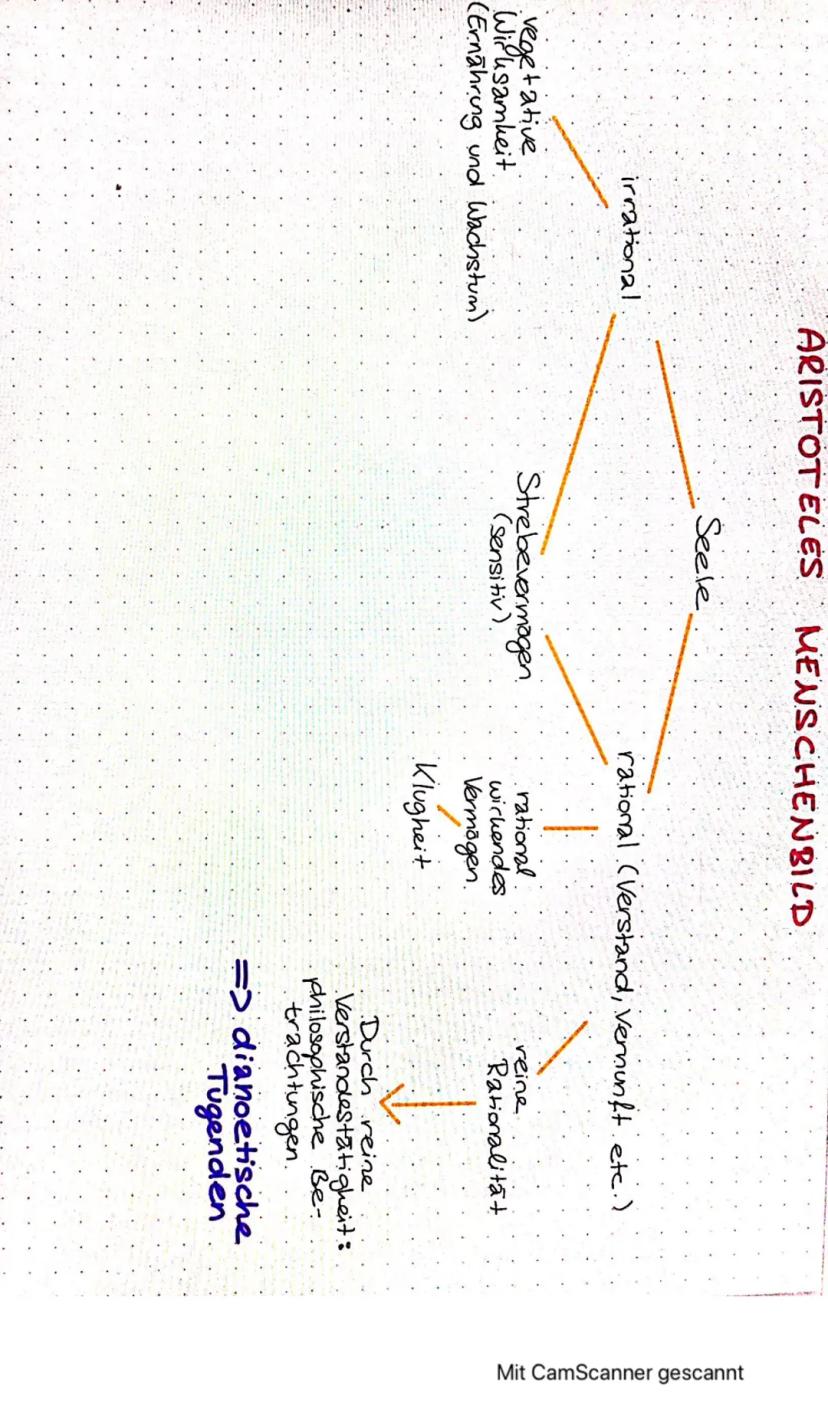 ARISTOTELES MENSCHENBILD
Seele
irrational
rational (Verstand, Vernunft etc.)
vegetative
Wirksamkeit
(Ernährung und Wachstum)
Strebevermögen
(sensitiv)
rational
wirkendes
Vermögen
Klugheit
reine
Rationalität
Durch reine
Verstandestätigkeit:
philosophische Be-
trachtungen
=> dianoetische
Tugenden
Mit CamScanner gescannt